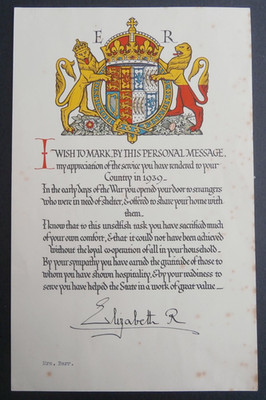 E R
I WISH TO MARK, BY THIS PERSONAL MESSAGE,
my appreciation of the service you have rendered to your
Country in 1939.
In the early days of the War you opened your door to strangers
who were in need of shelter, & offered to share your home with
them.
I know that to this unselfish task you have sacrificed much
of your own comfort, & that it could not have been achieved
without the loyal co-operation of all in your household.
By your sympathy you have earned the gratitude of those to
whom you have shown hospitality, & by your readiness to
serve you have helped the State in a work of great value
Elizabeth R